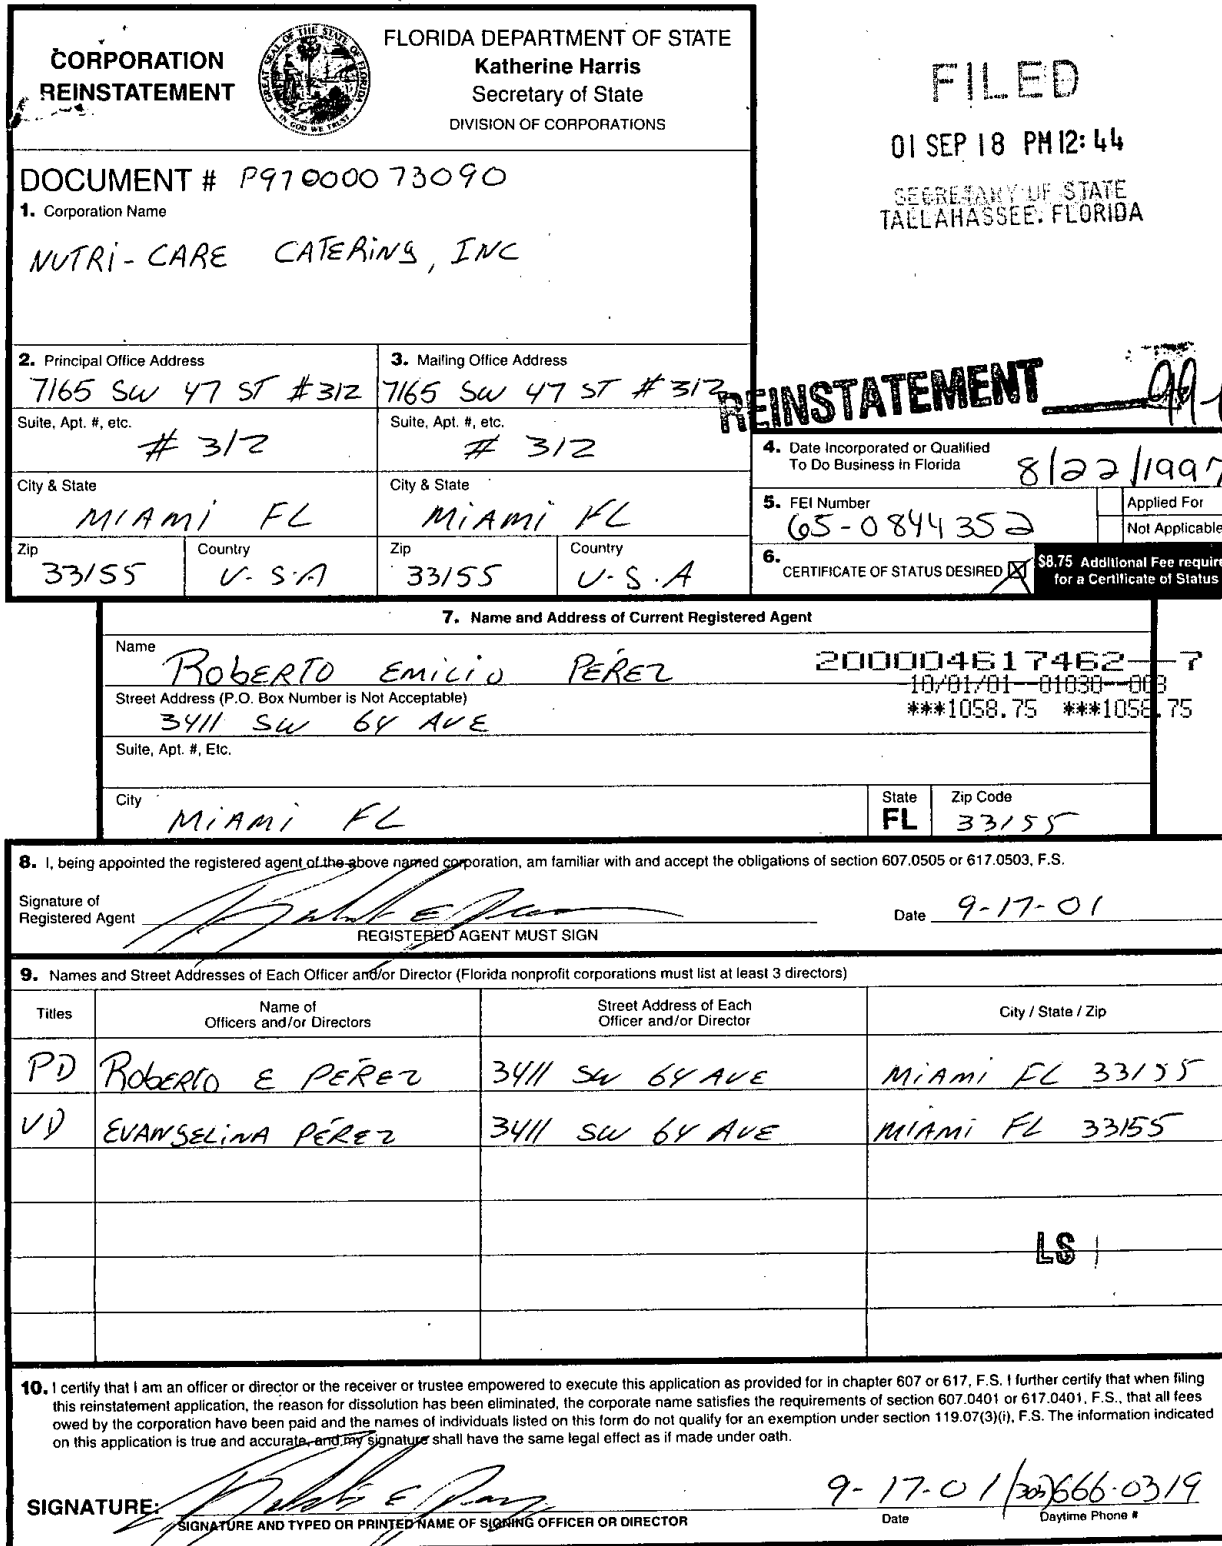 CORPORATION
REINSTATEMENT
GREAT SEAL OF THE STATE OF FLORIDA
IN GOD WE TRUST
FLORIDA DEPARTMENT OF STATE
Katherine Harris
Secretary of State
DIVISION OF CORPORATIONS
FILED
01 SEP 18 PM 12:44
SECRETARY OF STATE
TALLAHASSEE, FLORIDA
DOCUMENT # P97000073090
1. Corporation Name
NUTRI-CARE CATERING, INC
2. Principal Office Address
7165 SW 47 ST #312
3. Mailing Office Address
7165 SW 47 ST #312
REINSTATEMENT
Suite, Apt. #, etc.
# 312
Suite, Apt. #, etc.
# 312
4. Date Incorporated or Qualified
To Do Business in Florida
8/22/1997
City & State
MIAMI FL
City & State
MIAMI FL
5. FEI Number
65-0844352
Applied For
Not Applicable
Zip
33155
Country
U.S.A
Zip
33155
Country
U.S.A
6. CERTIFICATE OF STATUS DESIRED
$8.75 Additional Fee require
for a Certificate of Status
7. Name and Address of Current Registered Agent
Name
ROBERTO EMILIO PÉREZ
200004617462--7
-10/01/01--01030--003
***1058.75 ***1058.75
Street Address (P.O. Box Number is Not Acceptable)
3411 SW 64 AVE
Suite, Apt. #, Etc.
City
MIAMI FL
State
FL
Zip Code
33155
8. I, being appointed the registered agent of the above named corporation, am familiar with and accept the obligations of section 607.0505 or 617.0503, F.S.
Signature of
Registered Agent
REGISTERED AGENT MUST SIGN
Date 9-17-01
9. Names and Street Addresses of Each Officer and/or Director (Florida nonprofit corporations must list at least 3 directors)
Titles
Name of
Officers and/or Directors
Street Address of Each
Officer and/or Director
City / State / Zip
PD ROBERTO E PÉREZ 3411 SW 64 AVE MIAMI FL 33155
VD EVANGELINA PÉREZ 3411 SW 64 AVE MIAMI FL 33155
LS
10. I certify that I am an officer or director or the receiver or trustee empowered to execute this application as provided for in chapter 607 or 617, F.S. I further certify that when filing
this reinstatement application, the reason for dissolution has been eliminated, the corporate name satisfies the requirements of section 607.0401 or 617.0401, F.S., that all fees
owed by the corporation have been paid and the names of individuals listed on this form do not qualify for an exemption under section 119.07(3)(i), F.S. The information indicated
on this application is true and accurate, and my signature shall have the same legal effect as if made under oath.
SIGNATURE:
SIGNATURE AND TYPED OR PRINTED NAME OF SIGNING OFFICER OR DIRECTOR
9-17-01
Date
(305)666-0319
Daytime Phone #